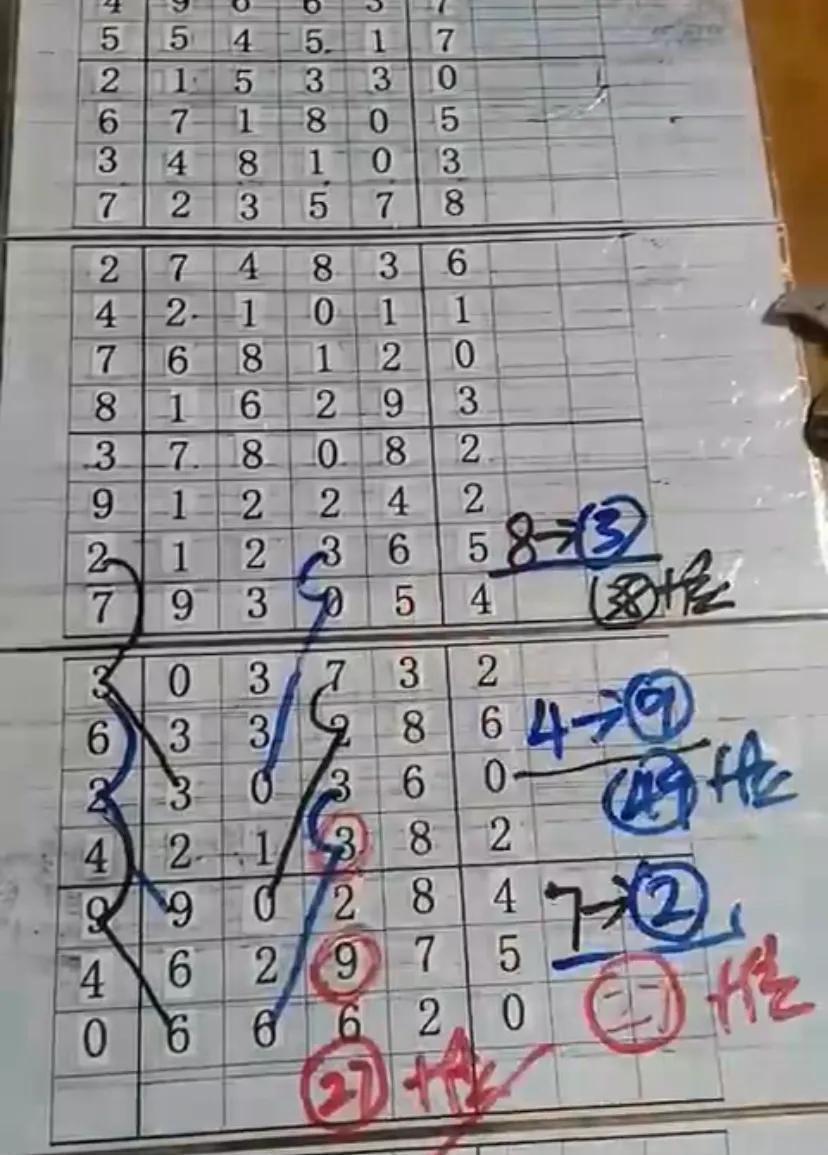 4 9 6 6 3 7
5 5 4 5 1 7
2 1 5 3 3 0
6 7 1 8 0 5
3 4 8 1 0 3
7 2 3 5 7 8
2 7 4 8 3 6
4 2 1 0 1 1
7 6 8 1 2 0
8 1 6 2 9 3
3 7 8 0 8 2
9 1 2 2 4 2
2 1 2 3 6 5 8→3
7 9 3 0 5 4 38十位
3 0 3 7 3 2
6 3 3 2 8 6 4→9
2 3 0 3 6 0 49十位
4 2 1 3 8 2
9 9 0 2 8 4 7→2
4 6 2 9 7 5
0 6 6 6 2 0 十位
27十位